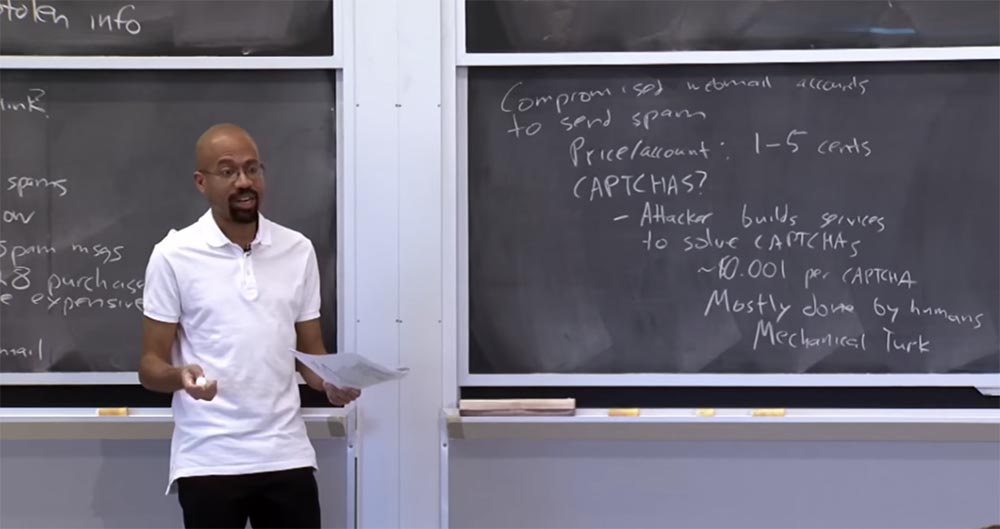 stolen info
link?
spams
ow
Spam msgs
28 purchase
e expensive
mail
Compromised webmail accounts
to send spam
Price/account: 1-5 cents
CAPTCHAS?
- Attacker builds services
to solve CAPTCHAs
~$0.001 per CAPTCHA
Mostly done by humans
Mechanical Turk